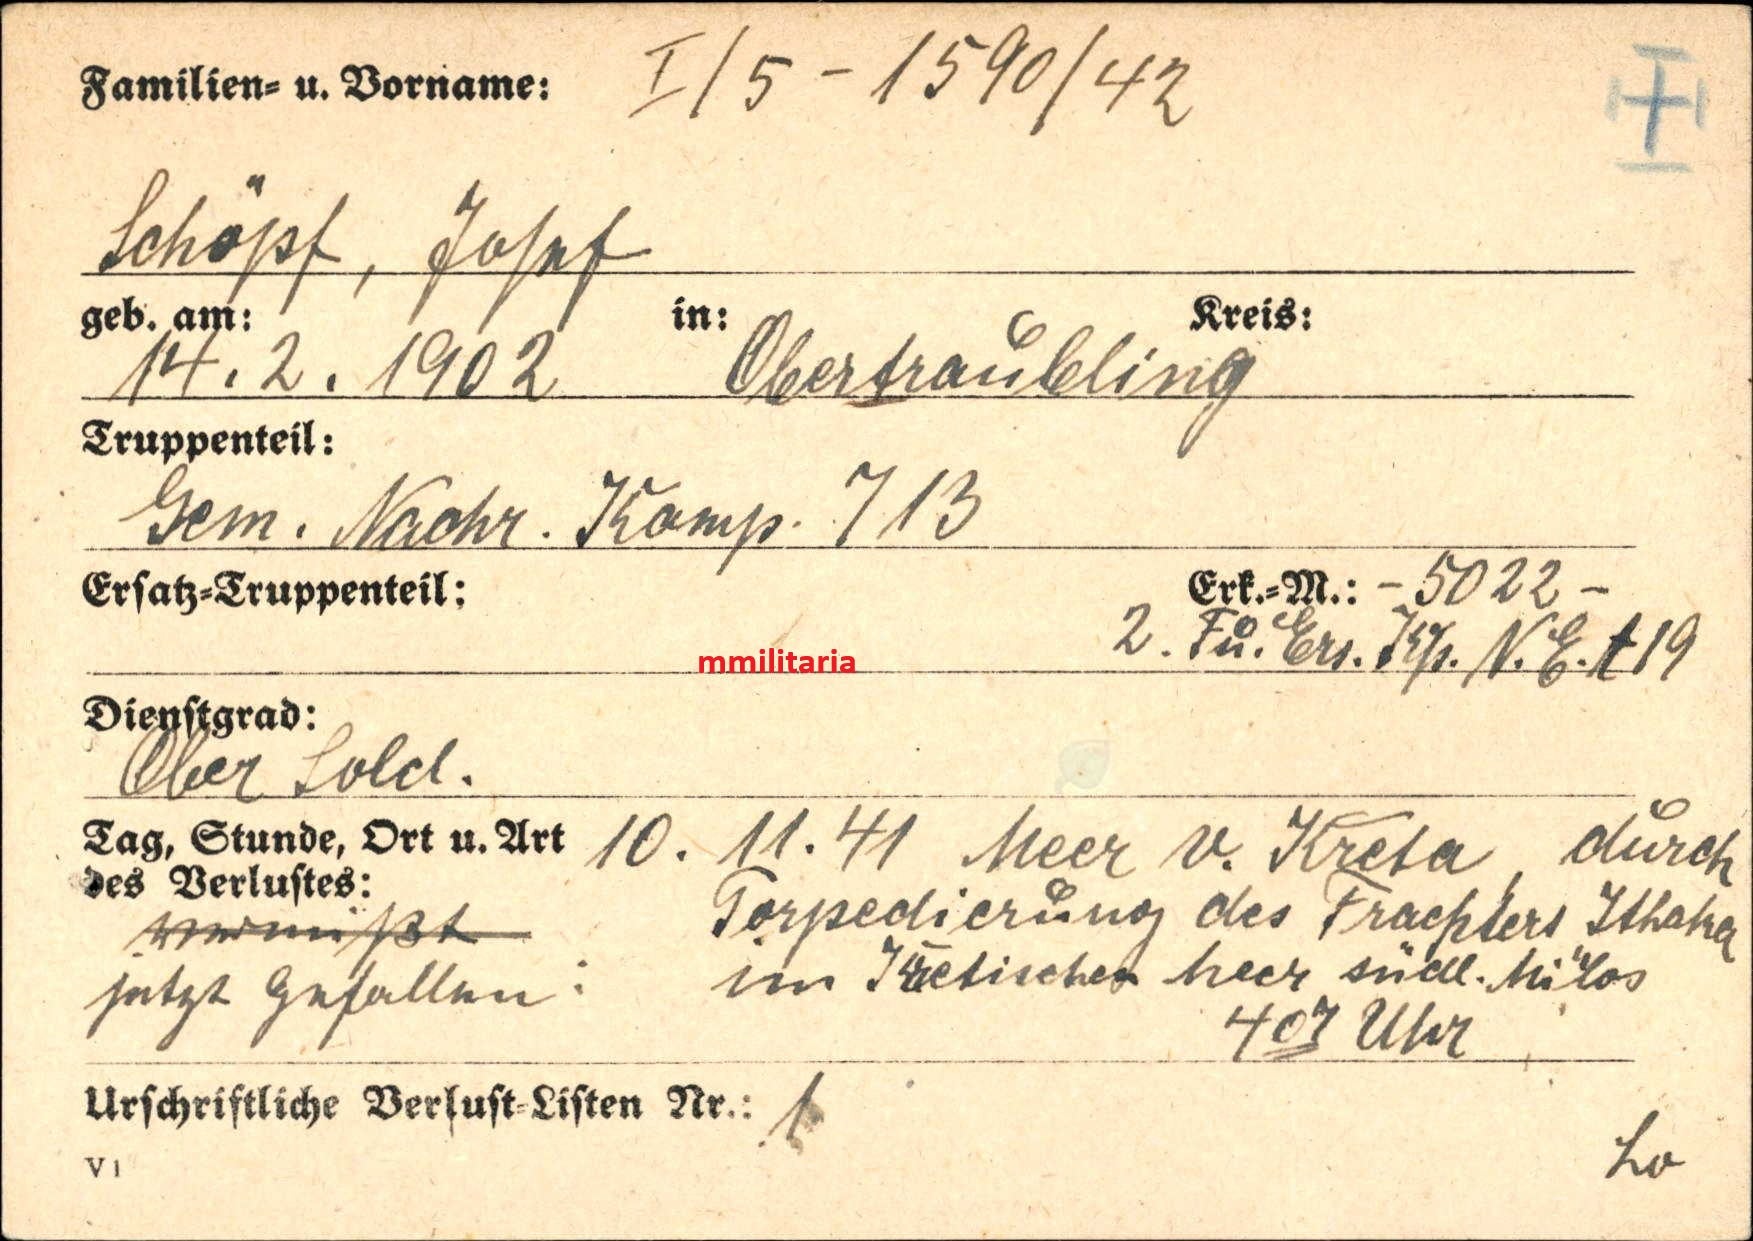 Familien- u. Vorname: I/5 - 1590/42
Schöpf, Josef
geb. am: in: Kreis:
14. 2. 1902 Obertraubling
Truppenteil:
Gem. Nachr. Komp. 713
Ersatz-Truppenteil: Erk.-M.: - 5022 -
2. Fu. Ers. Kp. N. E. A 19
mmilitaria
Dienstgrad:
Ober Sold.
Tag, Stunde, Ort u. Art 10. 11. 41 Meer v. Kreta, durch
des Verlustes: Torpedierung des Frachters Ithaka
vermißt
jetzt Gefallen: im Kretischen Meer südl. Milos
407 Uhr
Urschriftliche Verlust-Listen Nr.: 1
V 1